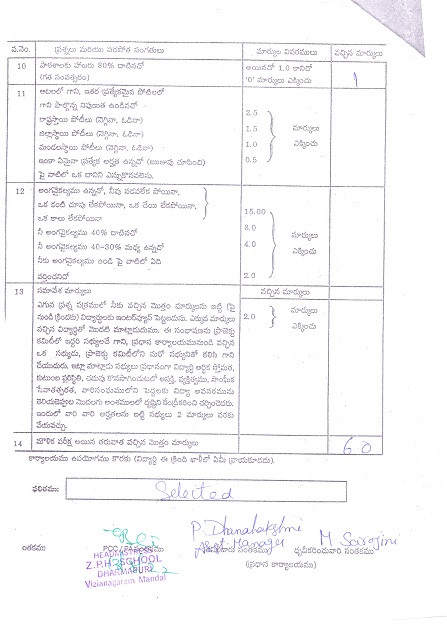 వ.నెం. ప్రశ్నలు మరియు పరపోత సంగతులు మార్కుల వివరములు వచ్చిన మార్కులు
10 పాఠశాలకు హాజరు 80% దాటినచో అయినచో 1.0 కానిచో
(గత సంవత్సరం) '0' మార్కులు ఎక్కించు 1
11 ఆటలలో గాని, ఇతర ప్రత్యేకమైన పోటీలలో
గాని పాల్గొన్న నిపుణత ఉండినచో
రాష్ట్రస్థాయి పోటీలు (నెగ్గినా, ఓడినా) 2.5
జిల్లాస్థాయి పోటీలు (నెగ్గినా, ఓడినా) 1.5 మార్కులు
మండలస్థాయి పోటీలు (నెగ్గినా, ఓడినా) 1.0 ఎక్కించు
ఇంకా ఏమైనా ప్రత్యేక అర్హత ఉన్నచో (ఋజువు చూపించి) 0.5
పై వాటిలో ఒక దానిని ఎన్నుకొనవలెను.
12 అంగవైకల్యము ఉన్నచో, నీవు నడవలేక పోయినా,
ఒక కంటి చూపు లేకపోయినా, ఒక చేయి లేకపోయినా, 15.00
ఒక కాలు లేకపోయినా 8.0
నీ అంగవైకల్యము 40% దాటినచో 4.0 మార్కులు
నీ అంగవైకల్యము 40-30% మధ్య ఉన్నచో ఎక్కించు
నీకు అంగవైకల్యము ఉండి పై వాటిలో ఏది
వర్తించనిచో 2.0
13 సమావేశ మార్కులు వచ్చిన మార్కులు
ఎగువ ప్రశ్న పత్రములో నీకు వచ్చిన మొత్తం మార్కులను బట్టి (పై
నుండి క్రిందకు) విద్యార్థులకు ఇంటర్వ్యూలో పెట్టబడును. ఎక్కువ మార్కులు 2.0 మార్కులు
వచ్చిన విద్యార్థితో మొదటి మాట్లాడుదుము. ఈ సంభాషణను ప్రాజెక్టు ఎక్కించు
కమిటీలో ఇద్దరి సభ్యులచే గాని, ప్రధాన కార్యాలయమునుండి వచ్చిన
ఒక సభ్యుడు, ప్రాజెక్టు కమిటీలోని మరో సభ్యునితో కలిసి గాని
చేయుదురు. ఇట్లా మాట్లాడు సభ్యులు ప్రధానంగా విద్యార్థి ఆర్థిక స్తోమత,
కుటుంబ పరిస్థితి, చదువు కొనసాగించుటలో ఆసక్తి, వ్యక్తిత్వము, సామాజిక
ఇందులో వారి వారి అర్హతలను బట్టి సభ్యులు 2 మార్కులు వరకు
వేయవచ్చు.
14 మౌఖిక పరీక్ష అయిన తరువాత వచ్చిన మొత్తం మార్కులు 60
కార్యాలయము ఉపయోగము కొరకు (విద్యార్థి ఈ క్రింది ఖాళీలో ఏమీ వ్రాయకూడదు).
ఫలితము: Selected
P. Dhanalakshmi
Asst. Manager M Sarojini
HEADMASTER
Z.P.H. SCHOOL
DHARMAPURI
Vizianagaram Mandal
ధృవీకరించువారి సంతకము
(ప్రధాన కార్యాలయము)